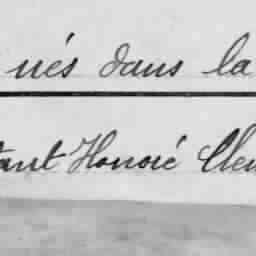 nés dans la
tant Honoré Clem